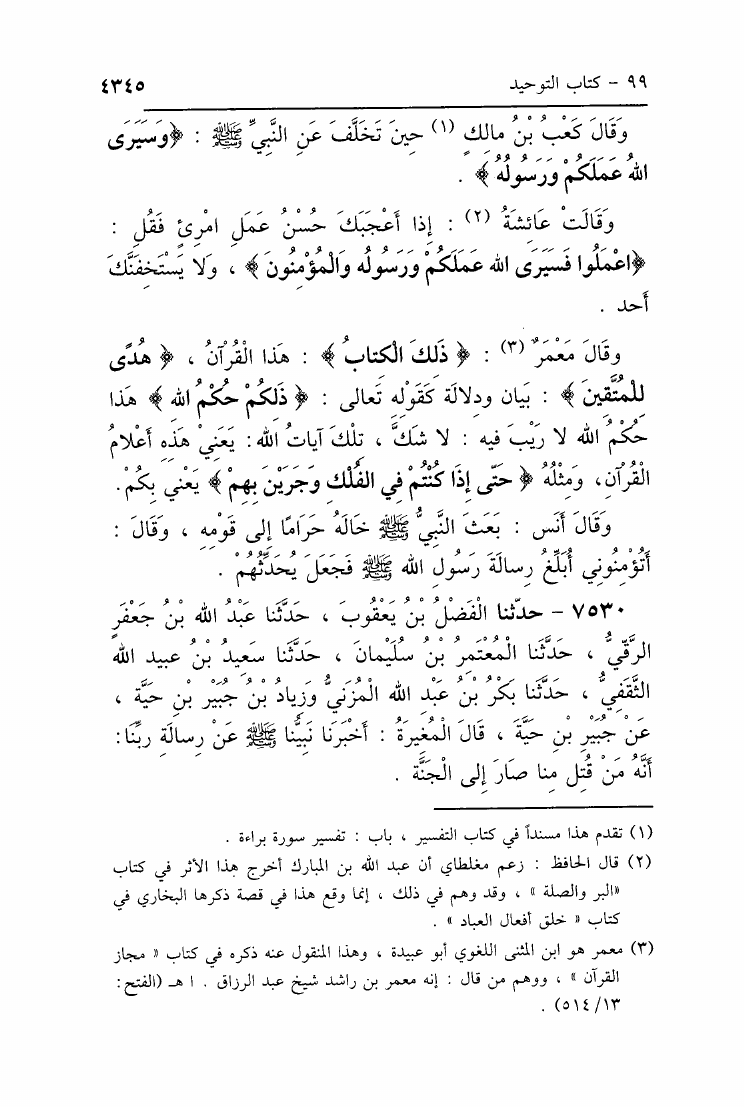 ٩٩ - كتاب التوحيد ٤٣٤٥
وَقَالَ كَعْبُ بْنُ مالِكٍ (١) حِينَ تَخَلَّفَ عَنِ النَّبِيِّ ﷺ : ﴿وَسَيَرَى
اللهُ عَمَلَكُمْ وَرَسُولُهُ﴾ .
وَقَالَتْ عَائِشَةُ (٢) : إِذا أَعْجَبَكَ حُسْنُ عَمَلِ امْرِئٍ فَقُلِ :
﴿اعْمَلُوا فَسَيَرَى الله عَمَلَكُمْ وَرَسُولُه وَالْمُؤْمِنُونَ﴾ ، وَلا يَسْتَخِفَّنَّكَ
أَحد .
وَقَالَ مَعْمَرٌ (٣) : ﴿ ذَلِكَ الْكتابُ ﴾ : هَذا الْقُرْآنُ ، ﴿ هُدًى
لِلْمُتَّقِينَ ﴾ : بَيان ودلالَة كَقَوْلِه تَعالى : ﴿ ذَلِكُمْ حُكْمُ الله ﴾ هَذا
حُكْمُ الله لا رَيْبَ فيه : لا شكَّ ، تِلْكَ آيَاتُ الله : يَعَنِيْ هَذِه أَعْلامُ
الْقُرآن، وَمثْلُهُ ﴿ حَتّى إِذَا كُنْتُمْ في الفُلْك وَجَرَيْنَ بِهِمْ ﴾ يَعْني بِكُمْ.
وَقَالَ أَنَس : بَعَثَ النَّبِيُّ ﷺ خَالَهُ حَرَامًا إِلى قَوْمِه ، وَقَالَ :
أَتُؤْمِنُونِي أُبَلِّغُ رِسالَةَ رَسُولِ الله ﷺ فَجَعَلَ يُحَدِّثُهُمْ .
٧٥٣٠ - حدّثنا الْفَضْلُ بْنُ يَعْقُوبَ ، حَدَّثَنا عَبْدُ الله بْنُ جَعْفَرٍ
الرَّقِّيُّ ، حَدَّثَنا الْمُعْتَمِرُ بْنُ سُلَيْمانَ ، حَدَّثَنا سَعِيدُ بْنُ عبيد الله
الثَّقَفِيُّ ، حَدَّثَنا بَكْرُ بْنُ عَبْدِ الله الْمُزَنِيُّ وَزِيادُ بْنُ جُبَيْرِ بْنِ حَيَّةَ ،
عَنْ جُبَيْرِ بْنِ حَيَّةَ ، قَالَ الْمُغِيرَةُ : أَخْبَرَنَا نَبِيُّنا ﷺ عَنْ رِسالَةِ ربِّنَا:
أَنَّهُ مَنْ قُتِل مِنا صَارَ إِلى الْجَنَّةِ .
(١) تقدم هذا مسنداً في كتاب التفسير ، باب : تفسير سورة براءة .
(٢) قال الحافظ : زعم مغلطاي أن عبد الله بن المبارك أخرج هذا الأثر في كتاب
«البر والصلة » ، وقد وهم في ذلك ، إنما وقع هذا في قصة ذكرها البخاري في
كتاب « خلق أفعال العباد » .
(٣) معمر هو ابن المثنى اللغوي أبو عبيدة ، وهذا المنقول عنه ذكره في كتاب « مجاز
القرآن » ، ووهم من قال : إنه معمر بن راشد شيخ عبد الرزاق . ا هـ (الفتح :
٥١٤/١٣) .